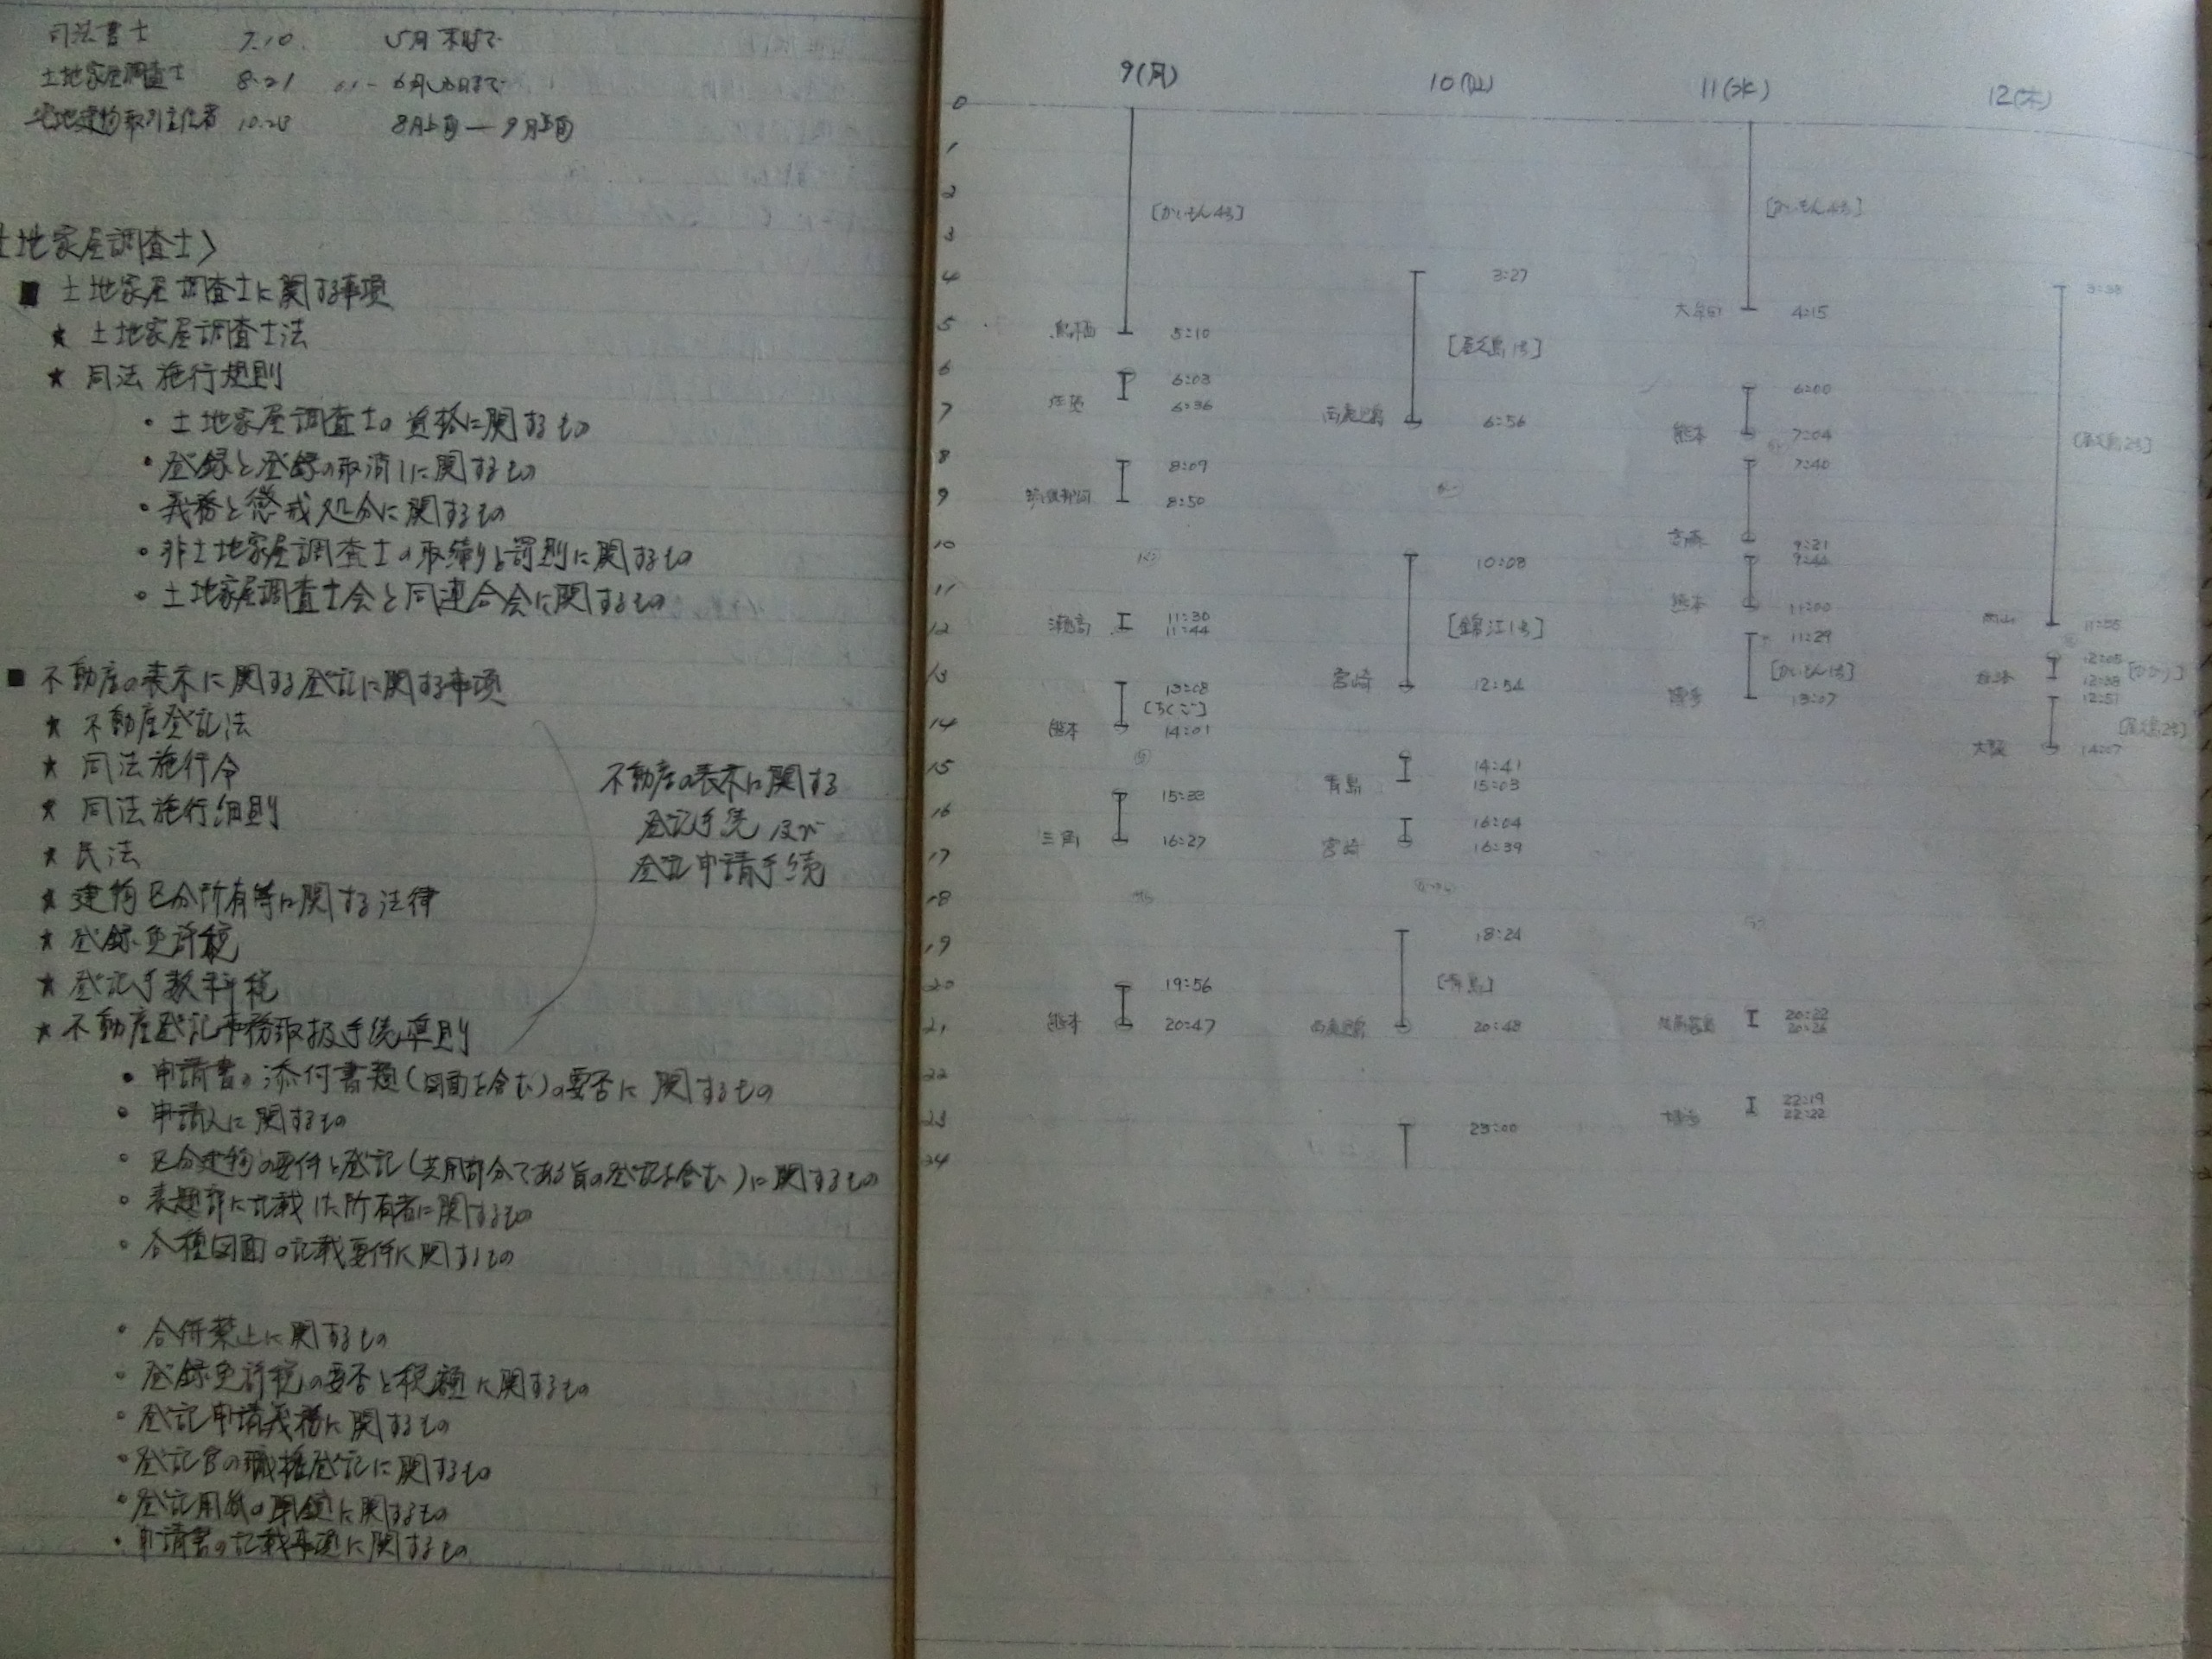 司法書士 7.10. 5月末まで
土地家屋調査士 8.21 6月 日まで
宅地建物取引主任者 10. 8月上旬ー9月上旬
土地家屋調査士〉
■ 土地家屋調査士に関する事項
★ 土地家屋調査士法
★ 同法施行規則
・土地家屋調査士の資格に関するもの
・登録と登録の取消しに関するもの
・義務と懲戒処分に関するもの
・非土地家屋調査士の取締りと罰則に関するもの
・土地家屋調査士会と同連合会に関するもの
■ 不動産の表示に関する登記に関する事項
★ 不動産登記法
★ 同法施行令
★ 同法施行細則
★ 民法
★ 建物区分所有等に関する法律
★ 登録免許税
★ 登記手数料税
★ 不動産登記事務取扱手続準則
不動産の表示に関する
登記手続 及び
登記申請手続
・申請書の添付書類(図面を含む)の要否に関するもの
・申請人に関するもの
・区分建物の要件と登記(共用部分である旨の登記を含む)に関するもの
・表題部に記載した所有者に関するもの
・各種図面の記載要件に関するもの
・合併禁止に関するもの
・登録免許税の要否と税額に関するもの
・登記申請義務に関するもの
・登記官の職権登記に関するもの
・登記用紙の閉鎖に関するもの
・申請書の記載事項に関するもの
0
1
2
3
4
5
6
7
8
9
10
11
12
13
14
15
16
17
18
19
20
21
22
23
24
9(月)
[かいもん4号]
鳥栖 5:10
6:03
佐賀 6:36
8:09
8:50
11:30
瀬高 11:44
13:08
[ちくご]
熊本 14:01
15:33
三角 16:27
19:56
熊本 20:47
10(火)
3:27
[屋久島1号]
西鹿児島 6:56
10:08
[錦江1号]
宮崎 12:54
14:41
青島 15:03
16:04
宮崎 16:39
18:24
[青島]
西鹿児島 20:48
23:00
11(水)
[かいもん4号]
大牟田 4:15
6:00
熊本 7:04
7:40
9:21
9:44
熊本 11:00
11:29
[かいもん1号]
博多 13:07
20:22
20:26
22:19
博多 22:22
12(木)
3:38
[屋久島2号]
岡山 11:55
12:05
12:38
12:51
[屋久島2号]
大阪 14:07